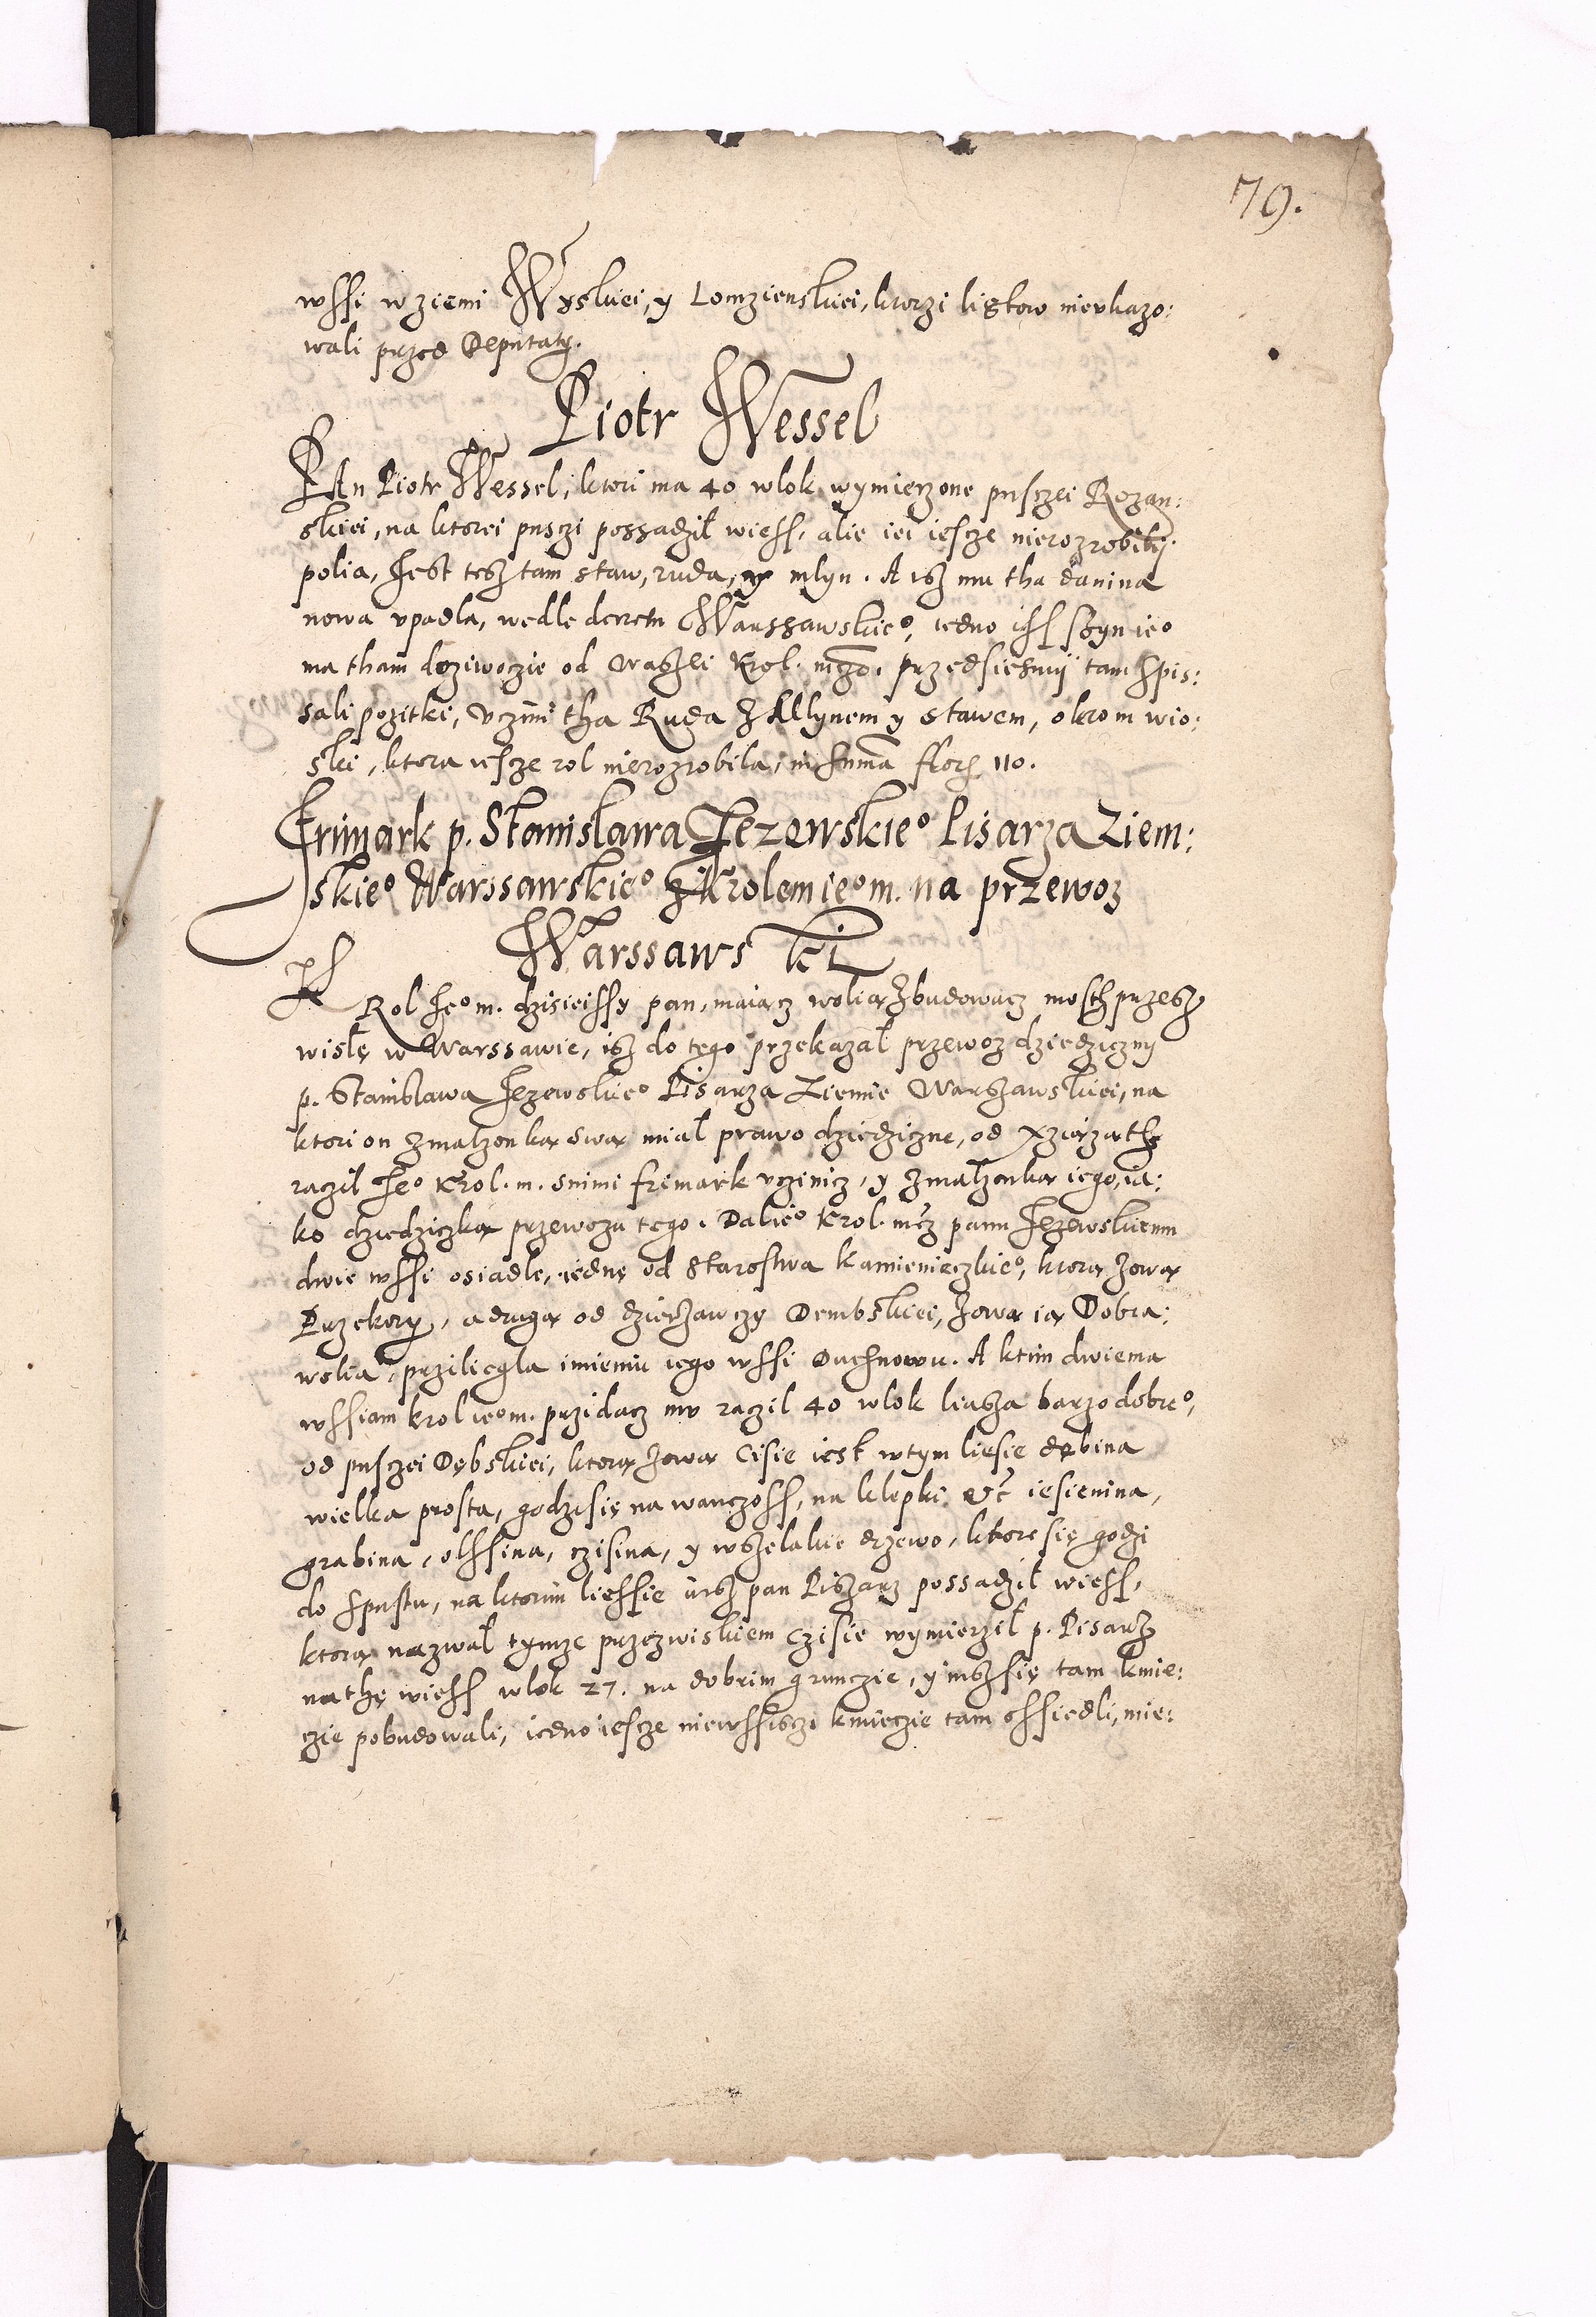 79.
wssi w ziemi Wyskiei, y Lomzienskiei, ktorzi listow nieukazo:
wali przed Deputaty.
Piotr Wessel
PAn Piotr Wessel, ktori ma 40 wlok wymierzone pusczei Rozan:
skiei, na ktorei pusczi possadzil wiess, alie iei iescze nierozrobily
polia, Jest tesz tam staw, ruda, y mlyn. A isz mu tha danina
nowa upadla, wedle decretu Warssawskieº, iedno iss syn ieº
ma tham doziwoczie od Krol. przedsiesmy tam spis:
sali pozitki, Uczini tha Ruda z Mlynem y stawem, okrom wio:
ski, ktora iescze rol nierozrobila, in summa flor. 110.
Frimark p. Stanislawa Jezewskieº Pisarza Ziem:
skieº Warssawskieº z Krolem ieº m. na przewoz
Warssawski
KRol Jeº m. dzisieissy pan, maiacz wolią zbudowacz mosth przesz
wislę w Warssawie, isz do tego przekazal przewoz dziedziczny
p. Stanislawa Jezewskieº Pisarza Ziemie Warszawskiei, na
ktori on z malzonką swą mial prawo dziedziczne, od Xziązath
raczil Jeº Krol. m. snimi frimark uczinicz, y z malzonką iego, ia:
ko dziedziczką przewozu tego. Dal ieº Krol. mcz panu Jezewskiemu
dwie wssi osiadle, iednę od Starostwa Kamienieczkieº, ktorą zową
Przekory, a drugą od dzierzawczy Dembskiei, zową ią Dobra:
wolia, przilięgla imieniu iego wssi Duchnowu. A ktim dwiema
wssiam krol ieº m. przidacz mu raczil 40 wlok liasza barzo dobreº,
od pusczei Dębskiei, ktorą zową Cisie iest wtym liesie dębina
wielka prosta, godzi się na wanczoss, na klepki, &c iesienina,
grabina, olssina, czisina, y wszelakie drzewo, ktore się godzi
do spustu, na ktorim liessie iusz pan Piszarz possadzil wiess,
ktorą nazwal tymze przezwiskiem Czisie wymierzil p. Pisarz
na thę wiess wlok 27. na dobrim grunczie, y iusz się tam kmie:
czie pobudowali, iedno iescze niewssisczi kmieczie tam ossiedli, mie: